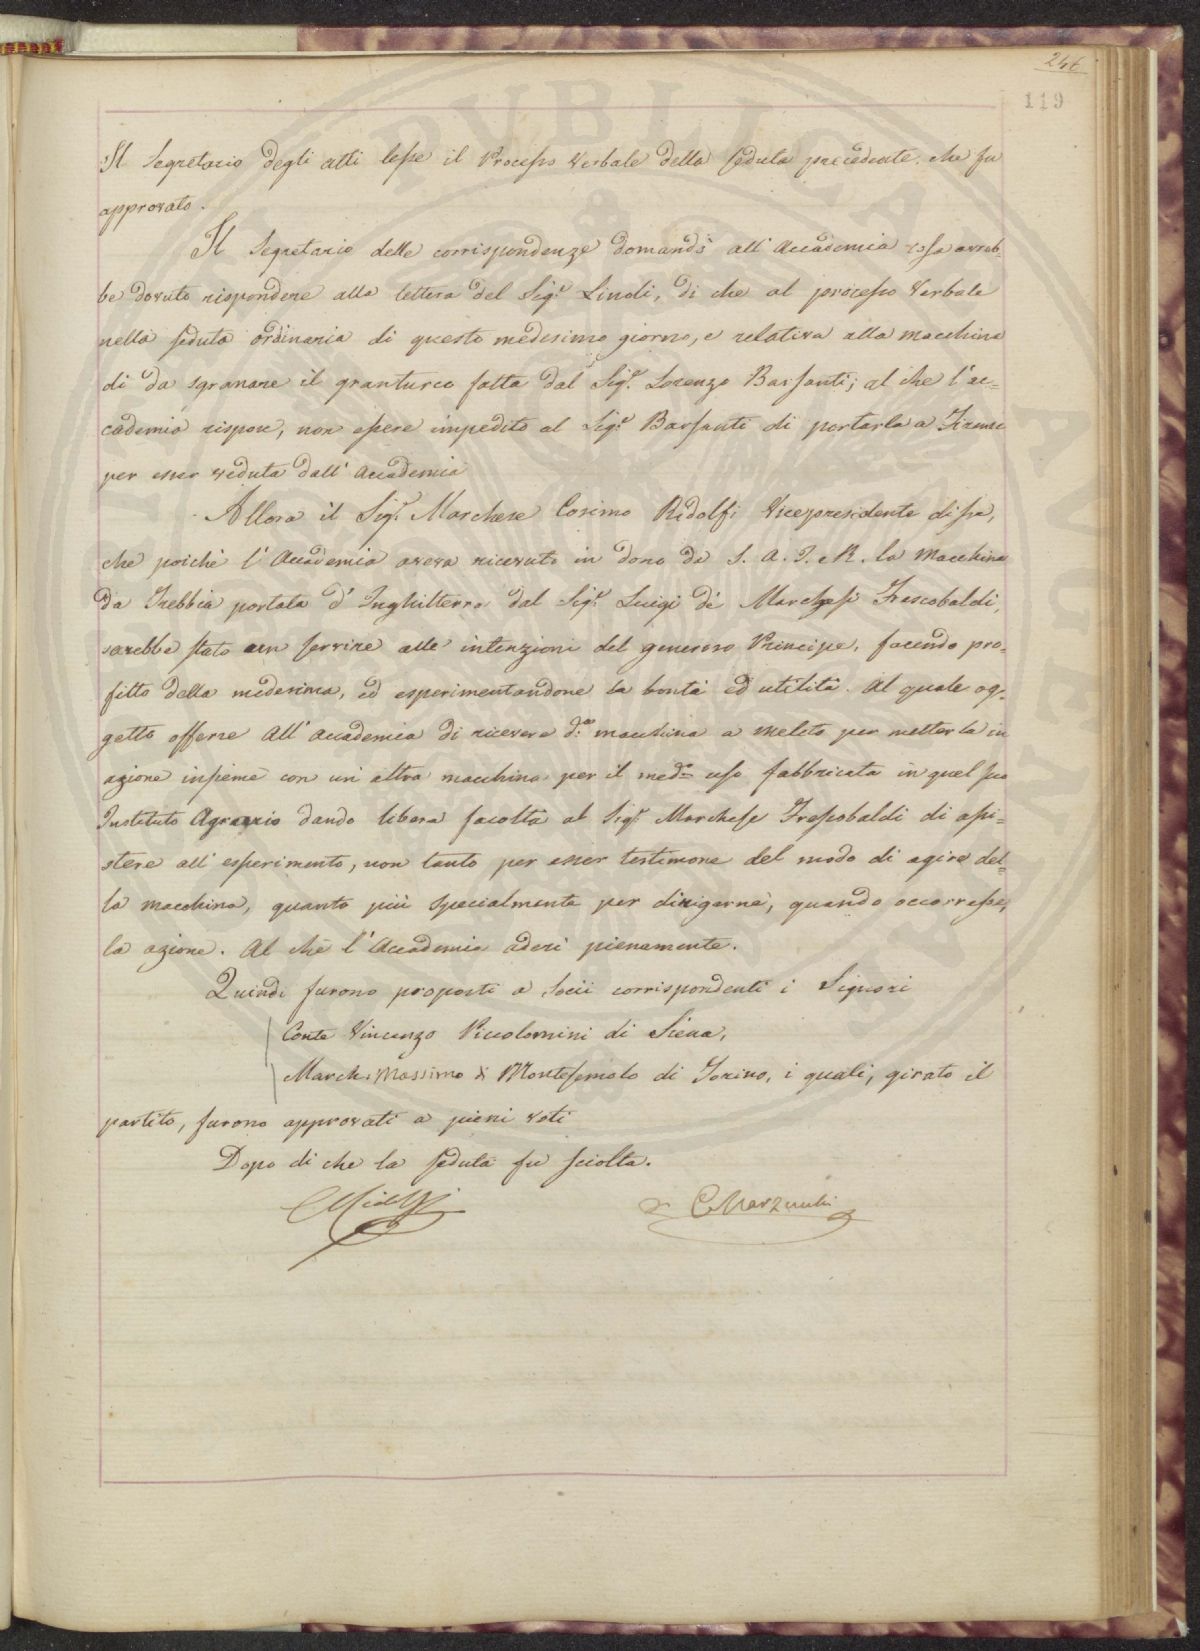 246
119
Il Segretario degli atti lesse il Processo Verbale della seduta precedente, che fu
approvato.
Il Segretario delle corrispondenze domandò all' Accademia cosa avreb-
be dovuto rispondere alla lettera del Sigr. Linoli, di che al processo Verbale
nella seduta ordinaria di questo medesimo giorno, e relativa alla macchina
di da sgranare il granturco fatta dal Sigr. Lorenzo Barsanti; al che l'ac-
cademia rispose, non essere impedito al Sigr. Barsanti di portarla a Firenze
per esser veduta dall' Accademia
Allora il Sigr. Marchese Cosimo Ridolfi Vicepresidente disse,
che poichè l' Accademia aveva ricevuto in dono da S. A. I. e R. la Macchina
da Trebbia portata d' Inghilterra dal Sigr. Luigi de' Marchesi Frescobaldi,
sarebbe stato un servire alle intenzioni del generoso Principe, facendo pro-
fitto della medesima, ed esperimentandone la bontà ed utilità. Al quale og-
getto offerse all' Accademia di ricevere da. macchina a Meleto per metterla in
azione insieme con un altra macchina per il medo. uso fabbricata in quel suo
Instituto Agrario dando libera facoltà al Sigr. Marchese Frescobaldi di assi-
stere all' esperimento, non tanto per esser testimone del modo di agire del-
la macchina, quanto più specialmente per dirigerne, quando occorresse,
la azione. Al che l' Accademia aderì pienamente.
Quindi furono proposti a Socii corrispondenti i Signori
Conte Vincenzo Piccolomini di Siena,
March. Massimo di Montezemolo di Torino, i quali, girato il
partito, furono approvati a pieni voti
Dopo di che la seduta fu sciolta.
CRidolfi
C Marzucchi
PVBLICA